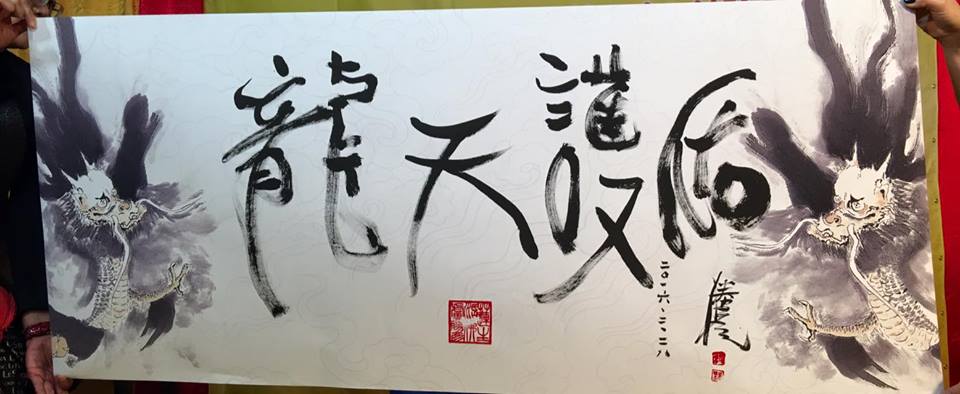 龍天護佑
二〇一六.二.二八